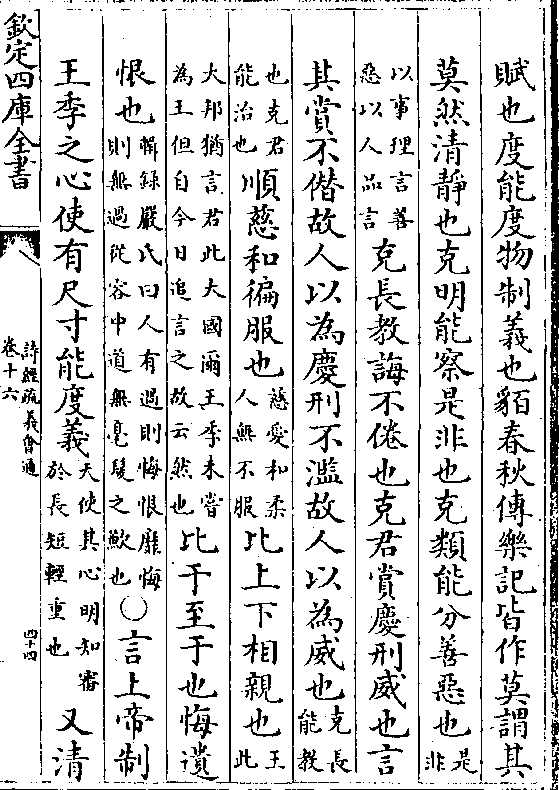 賦也度能度物制義也貊春秋傳樂記皆作莫謂其
莫然清靜也克明能察是非也克類能分善惡也是非
以事理言善惡以人品言克長教誨不倦也克君賞慶刑威也言
其賞不僭故人以為慶刑不濫故人以為威也克長能教
也克君能治也順慈和徧服也慈愛和柔人無不服比上下相親也王此
大邦猶言君此大國爾王季未嘗為王但自今日追言之故云然也比于至于也悔遺
恨也輯録嚴氏曰人有過則悔恨靡悔則無過從容中道無毫髮之歉也○言上帝制
王季之心使有尺寸能度義天使其心明知審於長短輕重也又清
欽定四庫全書
詩經疏義會通
卷十六
四十四